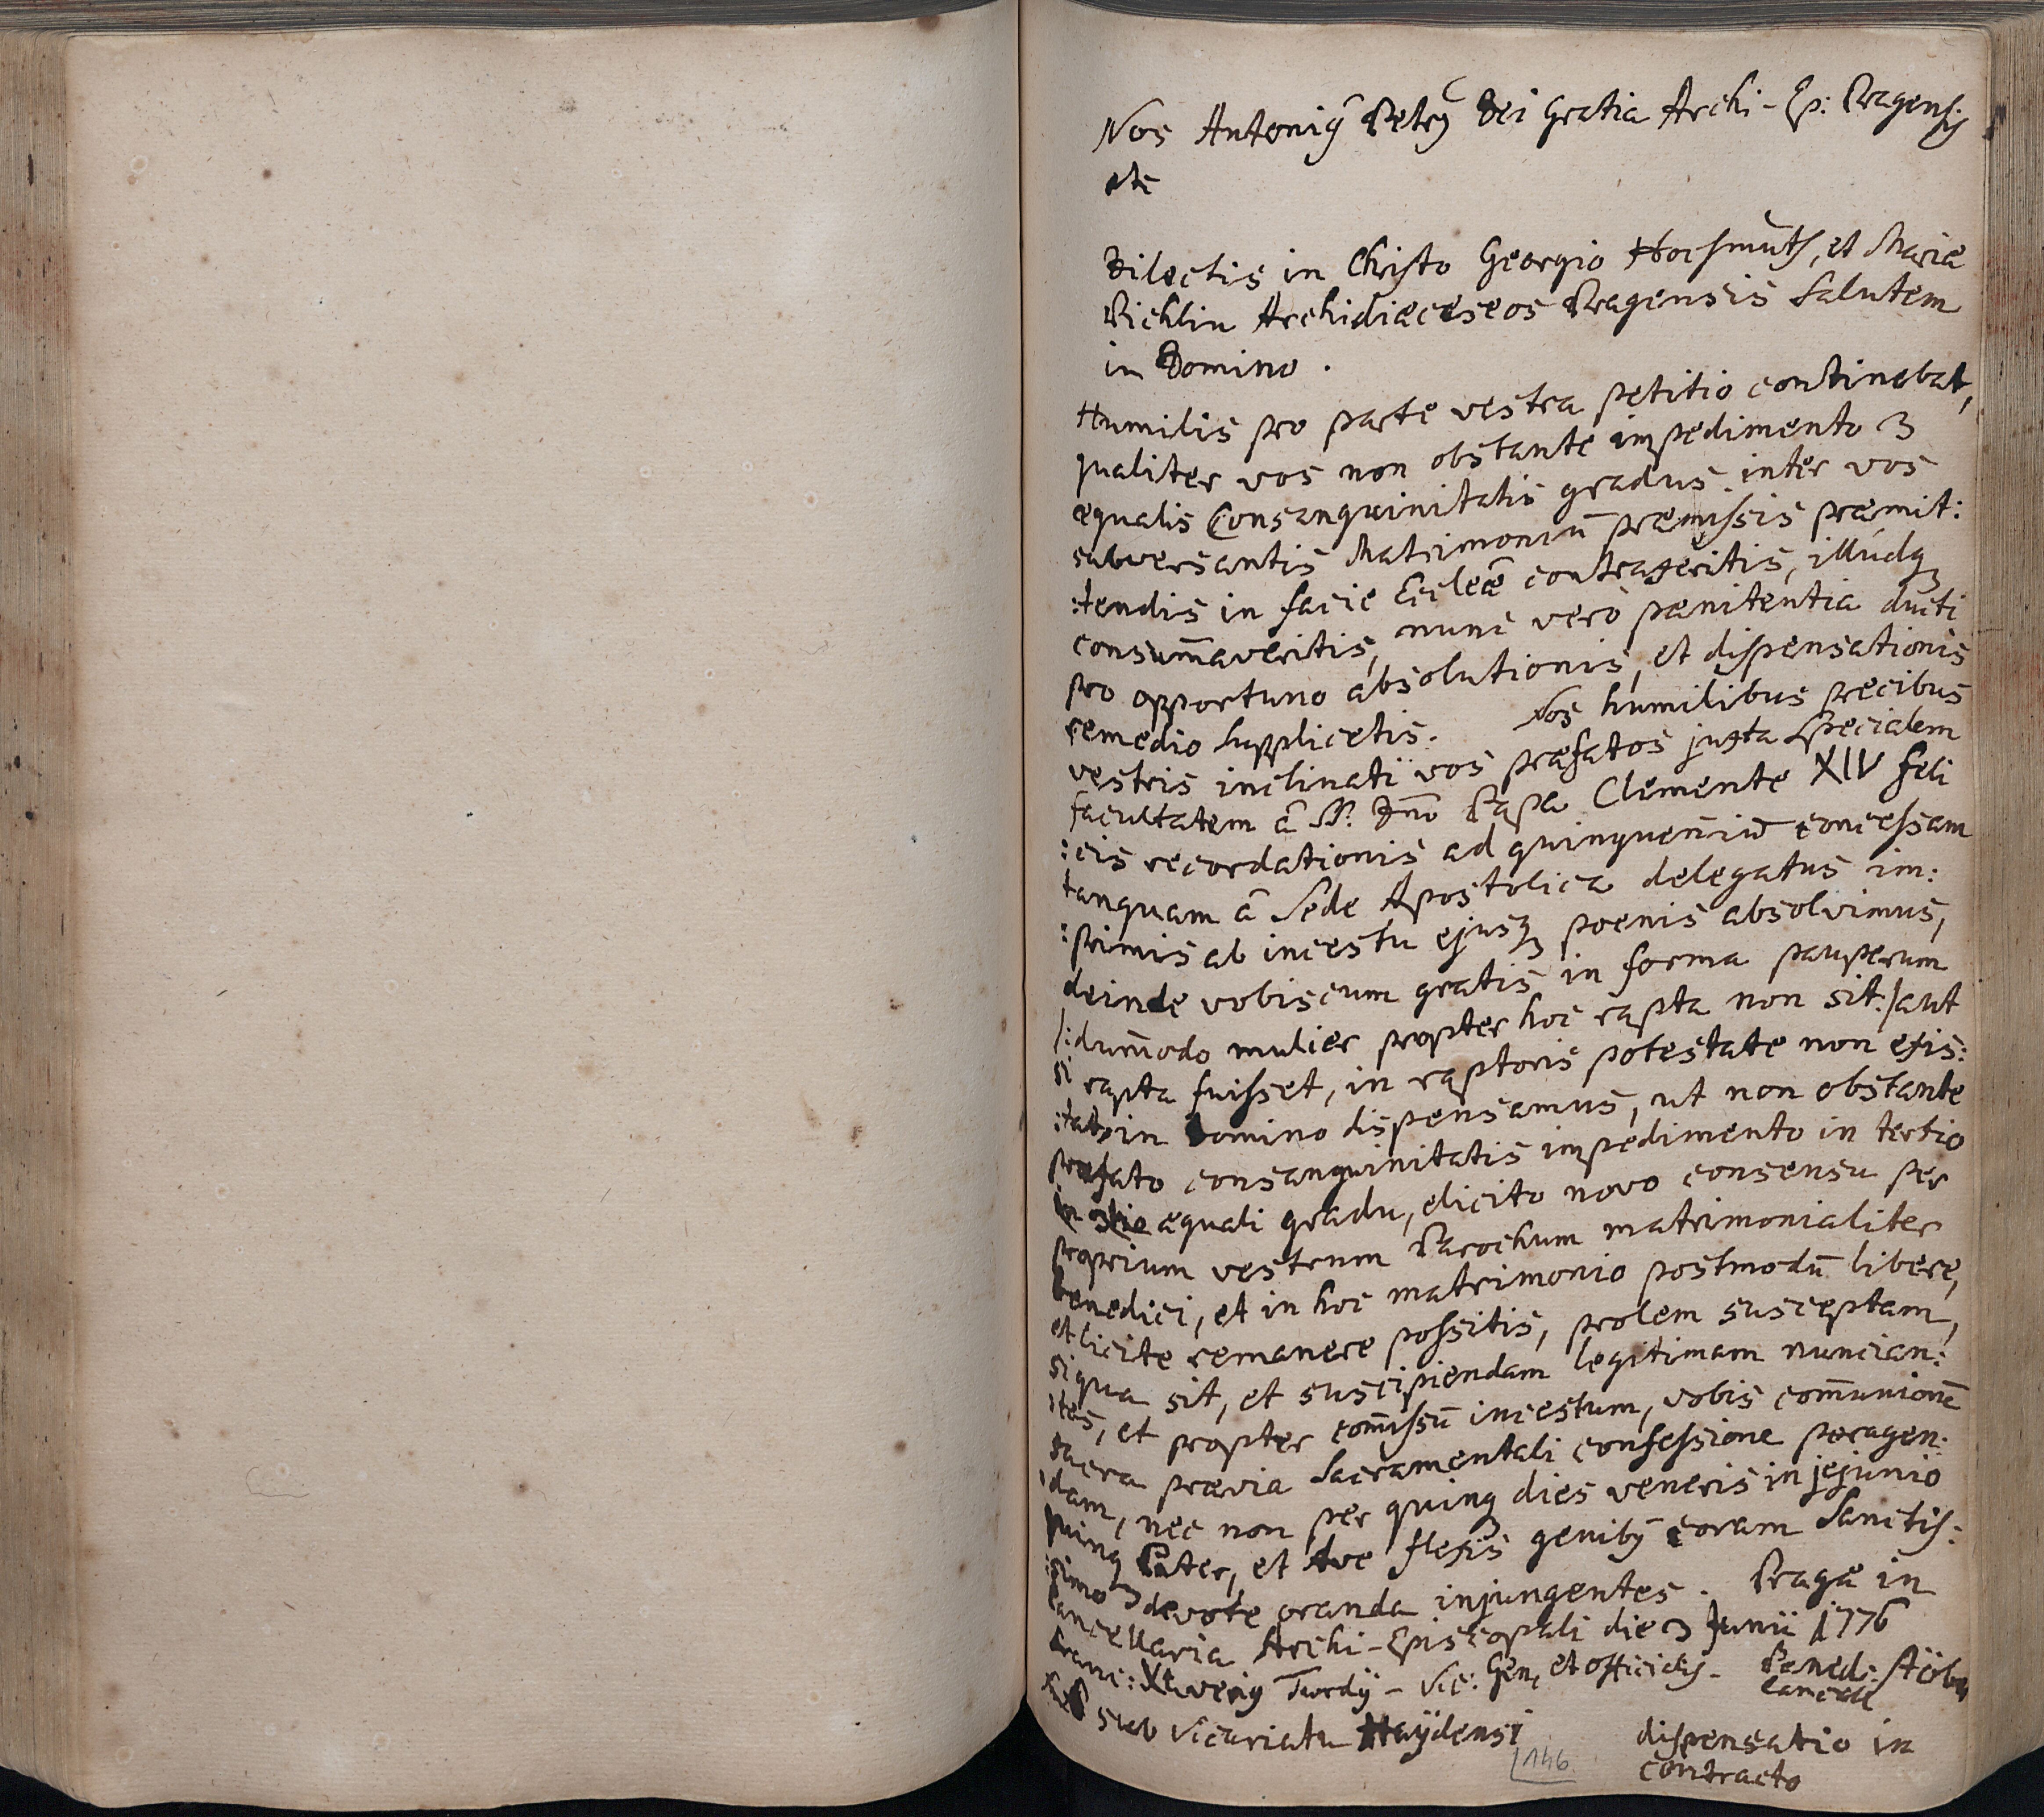 Nos Antoniꝰ Petrꝰ Dei Gratia Archi-Ep: Pragensis
etc
Dilectis in Christo Georgio Hocsmuth, et Maria
Pichlin Archidiaeceseos Pragensis Salutem
in Domino.
Humilis pro parte vestra petitio continebat,
qualiter vos non obstante impedimento 3
aequalis Consanguinitatis gradus inter vos
subversantis Matrimoniū praemissis praemit:
:tendis in facie Eccleae contraxeritis, illudqꝫ
consum̄averitis, nunc vero paenitentia ducti
pro opportuno absolutionis, et dispensationis
remedio supplicetis. Nos humilibus precibus
vestris inclinati vos praefatos juxta specialem
facultatem a SS. Dn̄o Papa Clemente XIV feli
:cis recordationis ad quinquen̄iū concessam
tanquam a Sede Apostolica delegatus im:
:primis ab incestu ejusqꝫ poenis absolvimus,
deinde vobiscum gratis in forma pauperum
/:dum̄odo mulier propter hoc rapta non sit:/ aut
si rapta fuisset, in raptoris potestate non exis:
:tat, in Domino dispensamus, ut non obstante
praefato consanguinitatis impedimento in tertio
aequali gradu, elicito novo consensu per
proprium vestrum Parochum matrimonialiter
benedici, et in hoc matrimonio postmodū libere,
et licite remanere possitis, prolem susceptam,
siqua sit, et suscipiendam legitimam nuncian:
:tes, et propter com̄issū incestum, vobis com̄unionē
sacra praevia Sacramentali confessione peragen:
:dam, nec non per quinqꝫ dies veneris in jejunio
quinqꝫ Pater, et Ave flexis genibꝰ coram Sanctis:
:simo devote oranda injungentes. Pragae in
Cancellaria Archi-Episcopali die 3 Junii 1776
Franc: Xaveriꝰ Twrdÿ - Vic: Gen, et officialis - Bened: Stöbr
cancell
sub Vicariatu Haÿdensi
dispensatio in
contracto
146